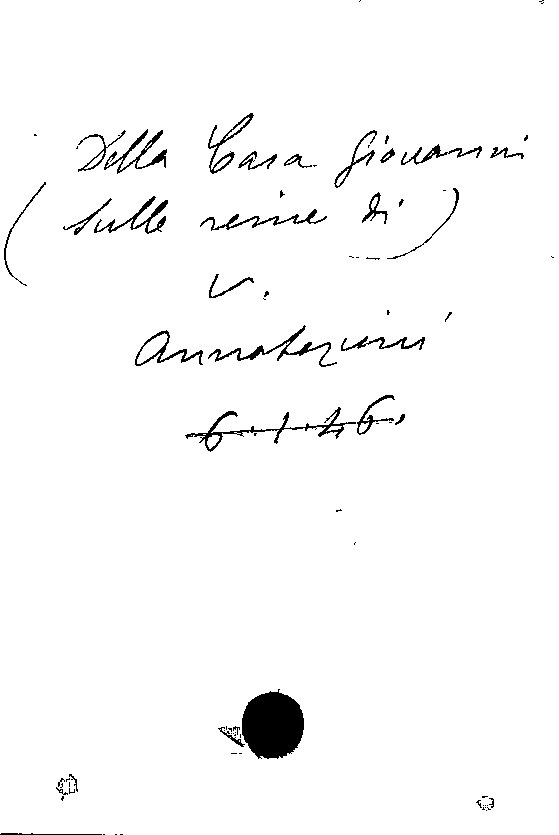 Della Casa Giovanni
(sulle rime di)
V.
Annotazioni
6.1.46.